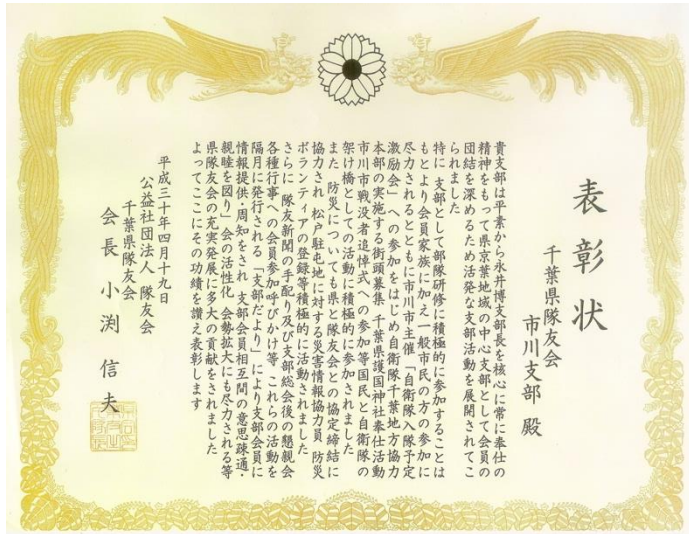 表彰状
千葉県隊友会
市川支部 殿
貴支部は平素から永井博支部長を核心に常に奉仕の
精神をもって県京葉地域の中心支部として会員の
団結を深めるため活発な支部活動を展開されてこ
られました
特に 支部として部隊研修に積極的に参加することは
もとより会員家族に加え一般市民の方の参加に
尽力されるとともに市川市主催「自衛隊入隊予定
激励会」への参加をはじめ自衛隊千葉地方協力
本部の実施する街頭募集 千葉県護国神社奉仕活動
市川市戦没者追悼式への参加等国民と自衛隊の
架け橋としての活動に積極的に参加されました
また 防災についても県と隊友会との協定締結に
協力され 松戸駐屯地に対する災害情報協力員 防災
ボランティアの登録等積極的に活動されました
さらに 隊友新聞の手配り及び支部総会後の懇親会
各種行事への会員参加呼びかけ等 これらの活動を
隔月に発行される「支部だより」により支部会員に
情報提供・周知をされ 支部会員相互間の意思疎通・
親睦を図り 会の活性化 会勢拡大にも尽力される等
県隊友会の充実発展に多大の貢献をされました
よってここにその功績を讃え表彰します
平成三十年四月十九日
公益社団法人 隊友会
千葉県隊友会
会長 小渕 信夫